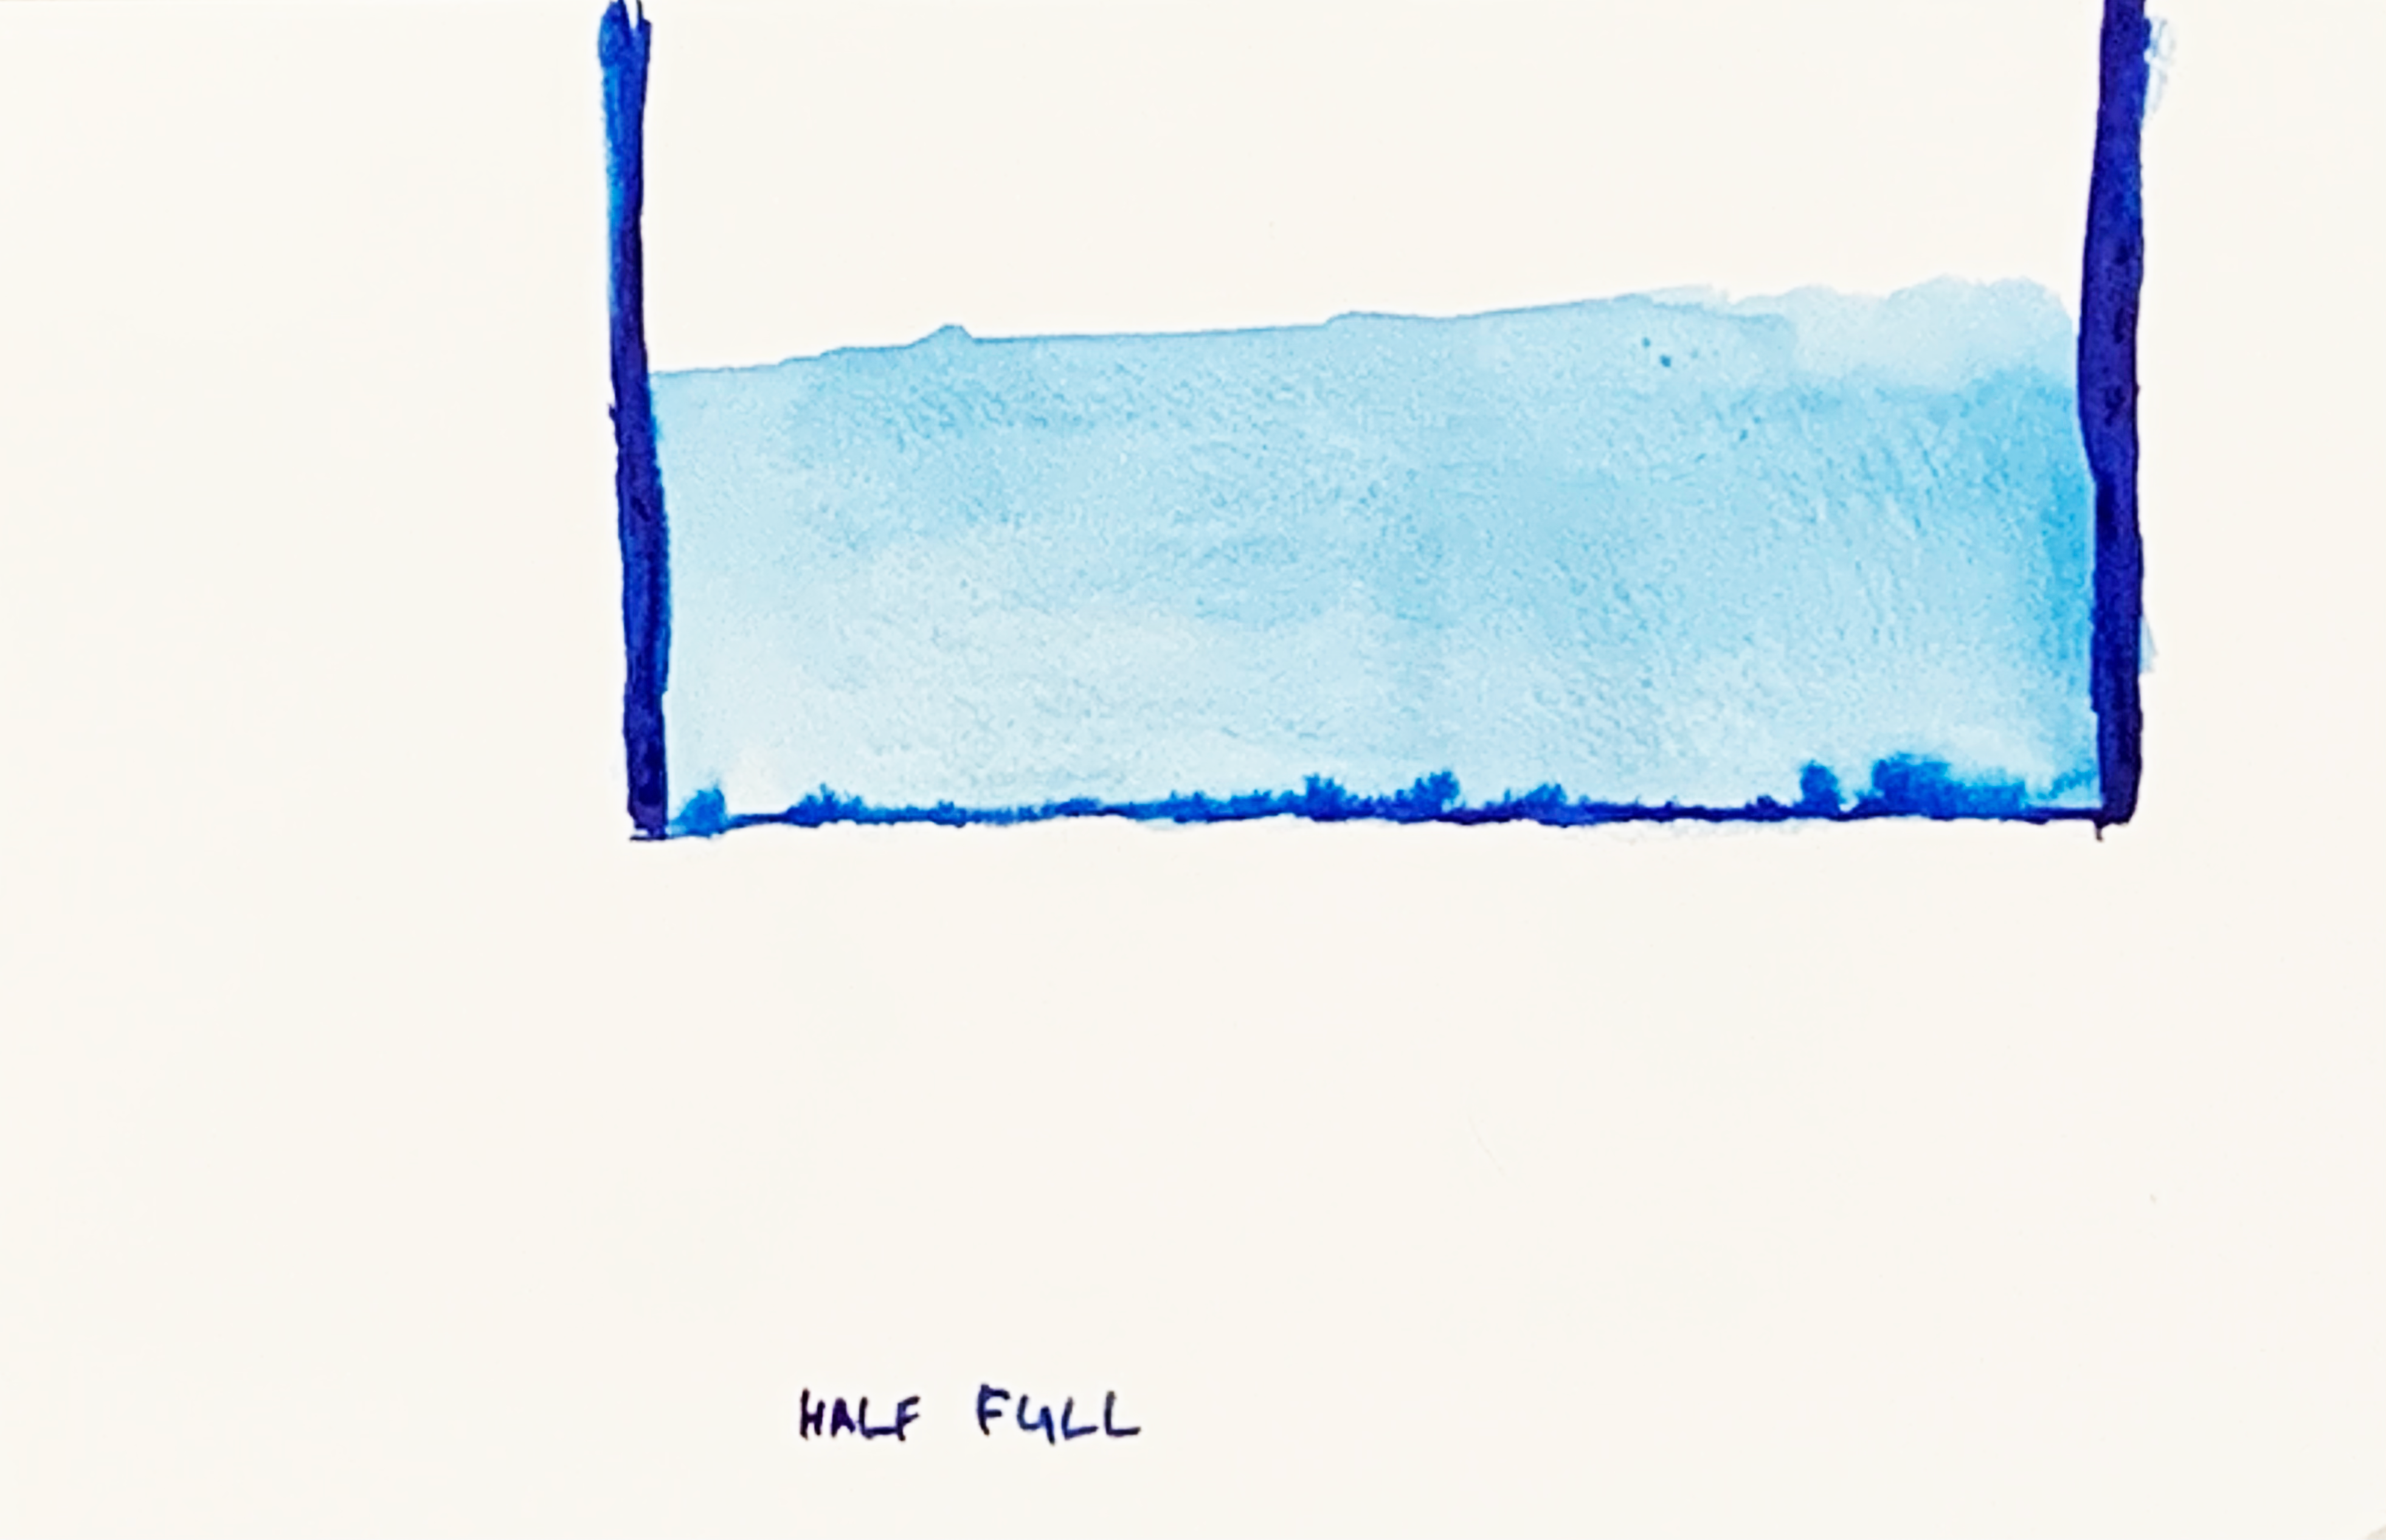 HALF FULL